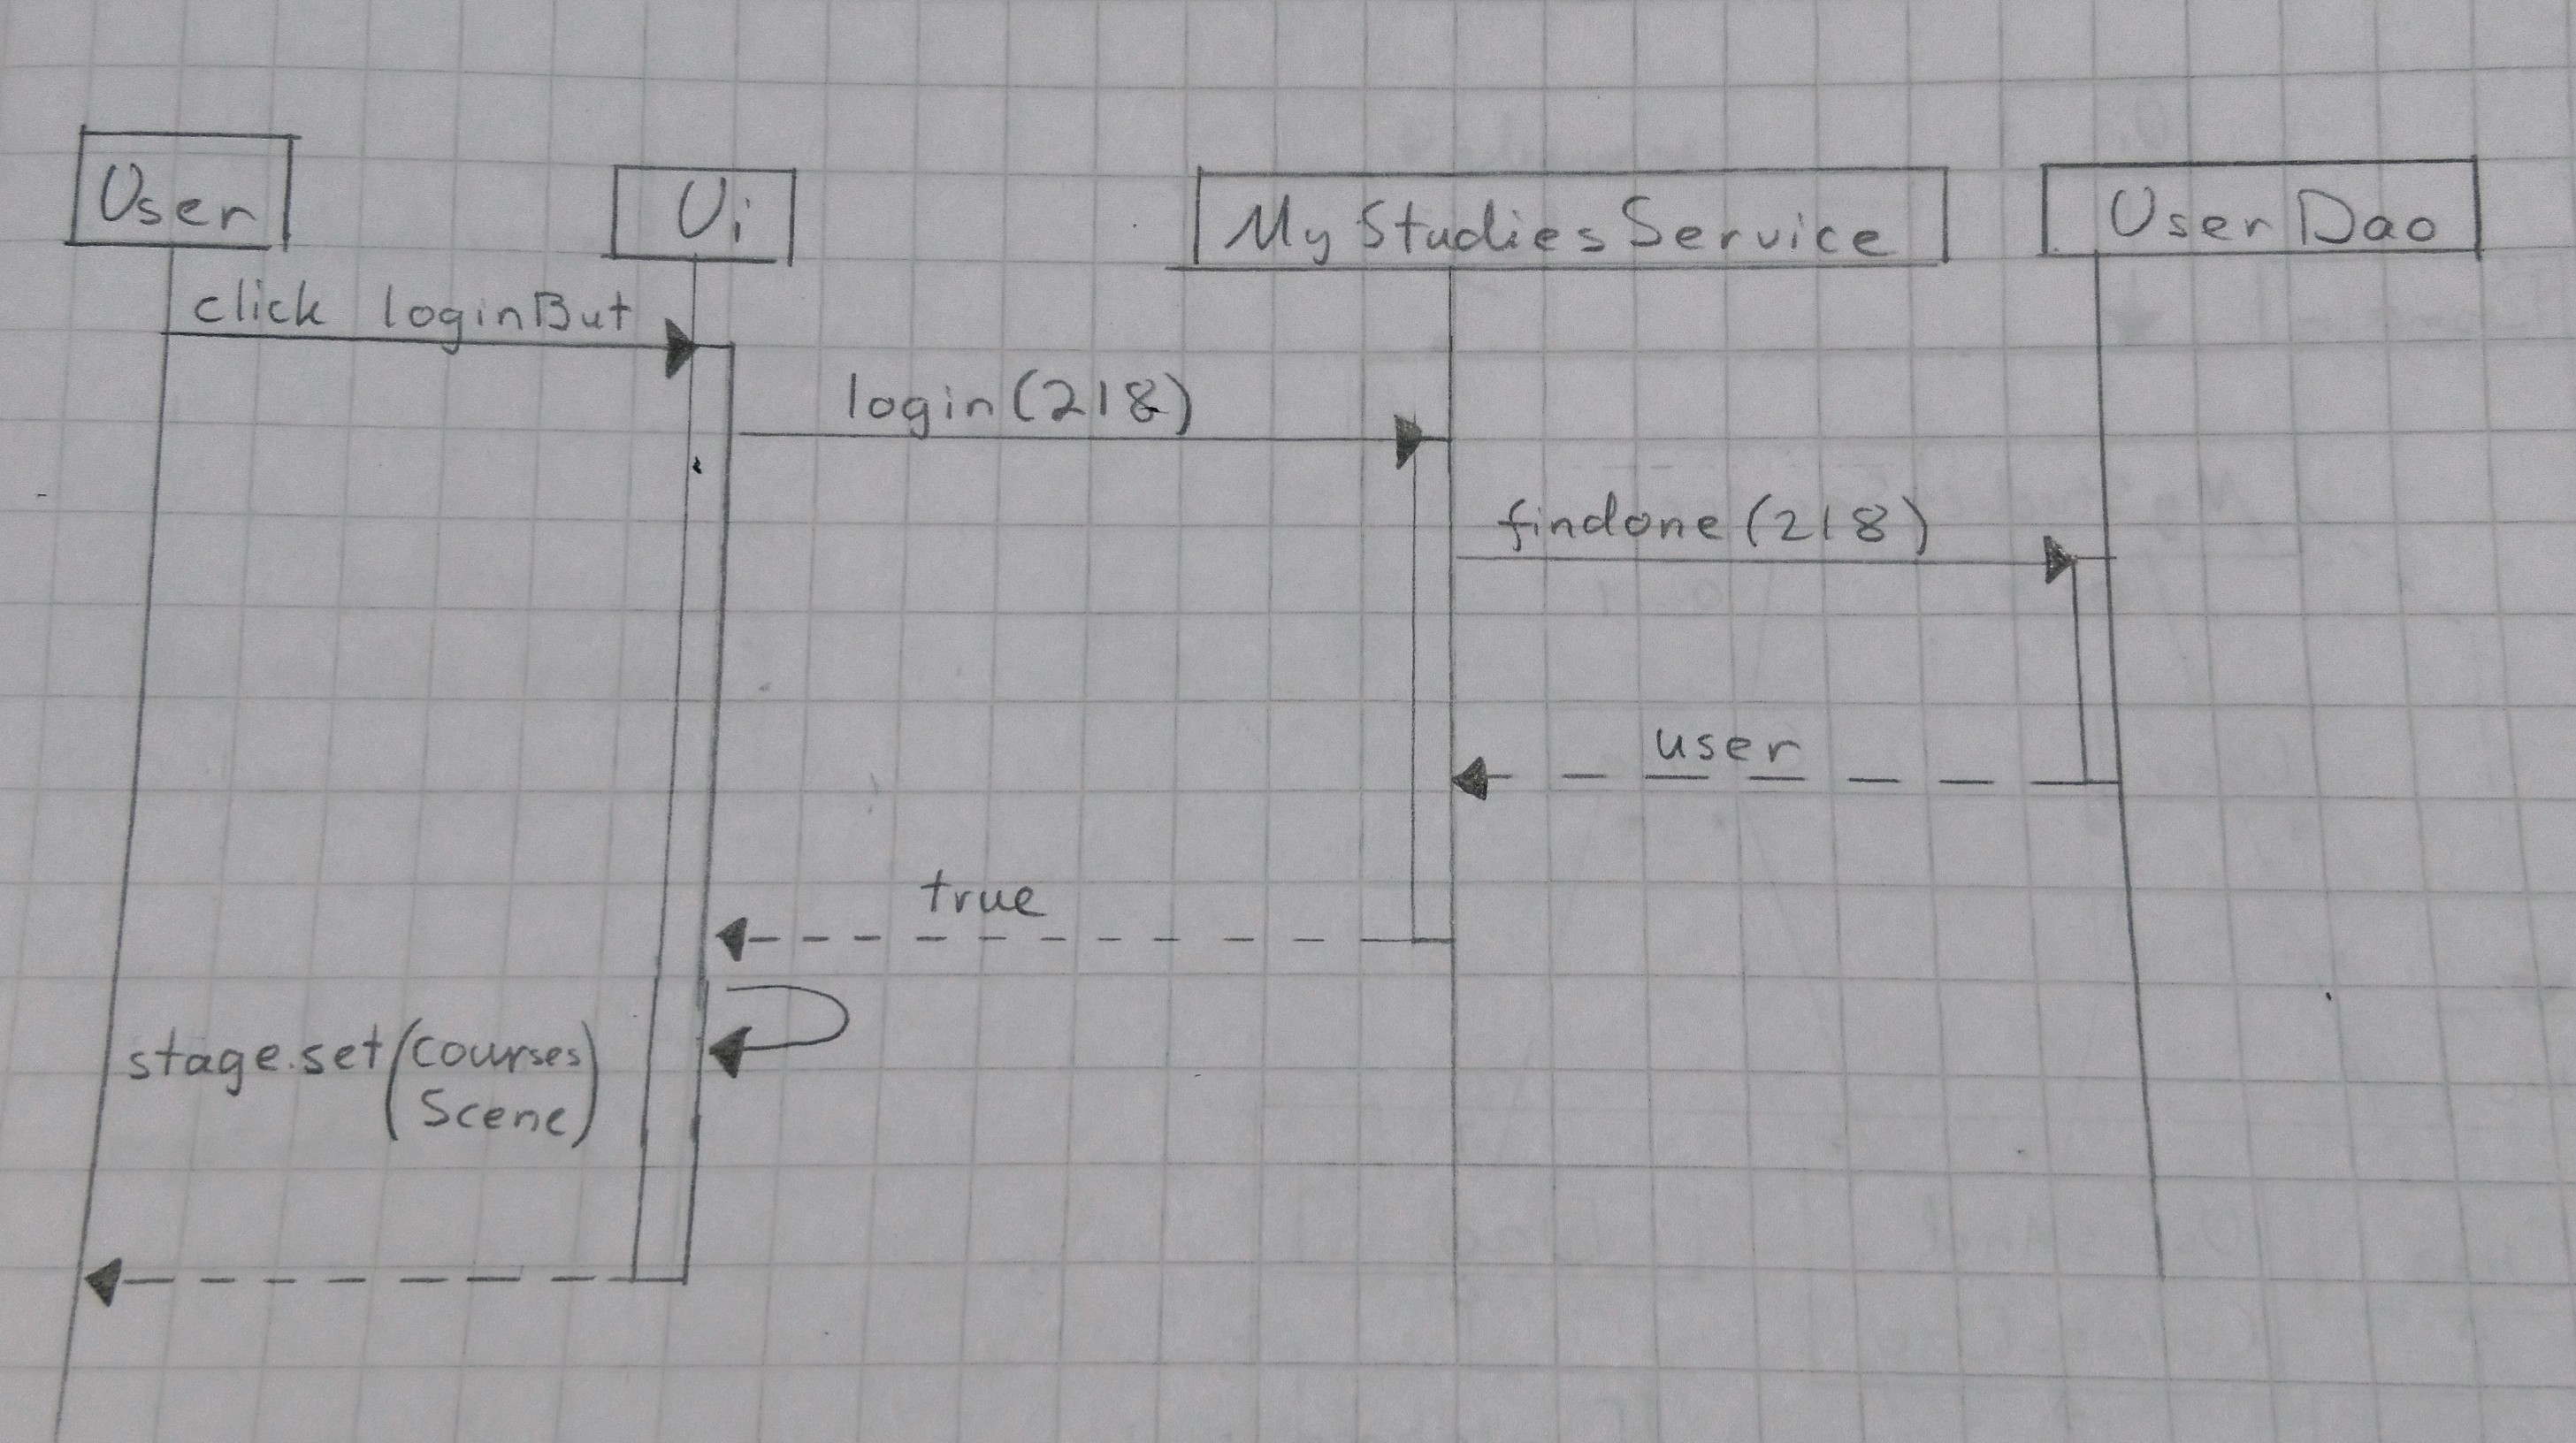 User
Ui
MyStudiesService
UserDao
click loginBut
login(218)
findone(218)
user
true
stage.set(courses
Scene)